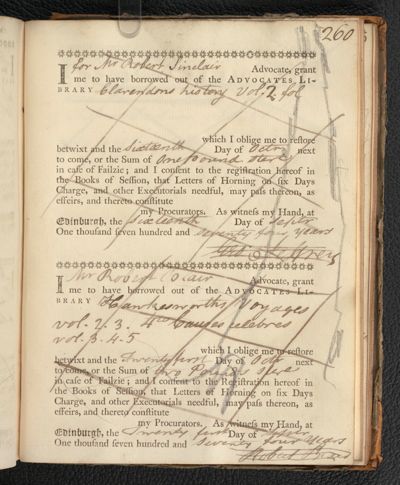 260
I for Mr Robert Sinclair Advocate, grant
me to have borrowed out of the ADVOCATES LI-
BRARY Clarendons history Vol. 2 fol
which I oblige me to reſtore
betwixt and the Sixteenth Day of Octr next
to come, or the Sum of One pound ster
in caſe of Failzie; and I conſent to the regiſtration hereof in
the Books of Seſſion, that Letters of Horning on ſix Days
Charge, and other Executorials needful, may paſs thereon, as
effeirs, and thereto conſtitute
my Procurators. As witneſs my Hand, at
Edinburgh, the Sixteenth Day of Septr
One thouſand ſeven hundred and Seventy four years
I Mr Robert Blair Advocate, grant
me to have borrowed out of the ADVOCATES LI-
BRARY Hawkesworths Voyages
vol. 2. 3. 4to Causes celebres
vol. 3. 4. 5
which I oblige me to reſtore
betwixt and the Twenty first Day of Octr next
to come, or the Sum of two Pounds
in caſe of Failzie; and I conſent to the Regiſtration hereof in
the Books of Seſſion, that Letters of Horning on ſix Days
Charge, and other Executorials needful, may paſs thereon, as
effeirs, and thereto conſtitute
my Procurators. As witneſs my Hand, at
Edinburgh, the Twenty first Day of Septr
One thouſand ſeven hundred and Seventy four years
Robert